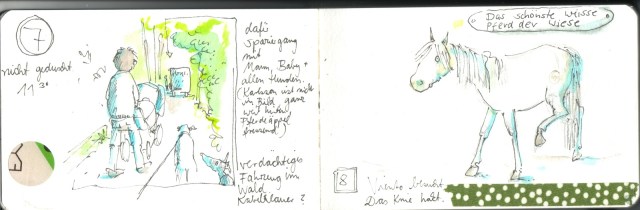 7
nicht geduscht
11³⁰
dafür
Spaziergang
mit
Mann, Baby +
allen Hunden.
(Karlsson ist nicht
im Bild, ganz
weit hinten,
Pferdeäpfel
fressend)
verdächtiges
Fahrzeug im
Wald
?
Das schönste weisse
Pferd der Wiese
8
bleibt.
Das Knie hält.